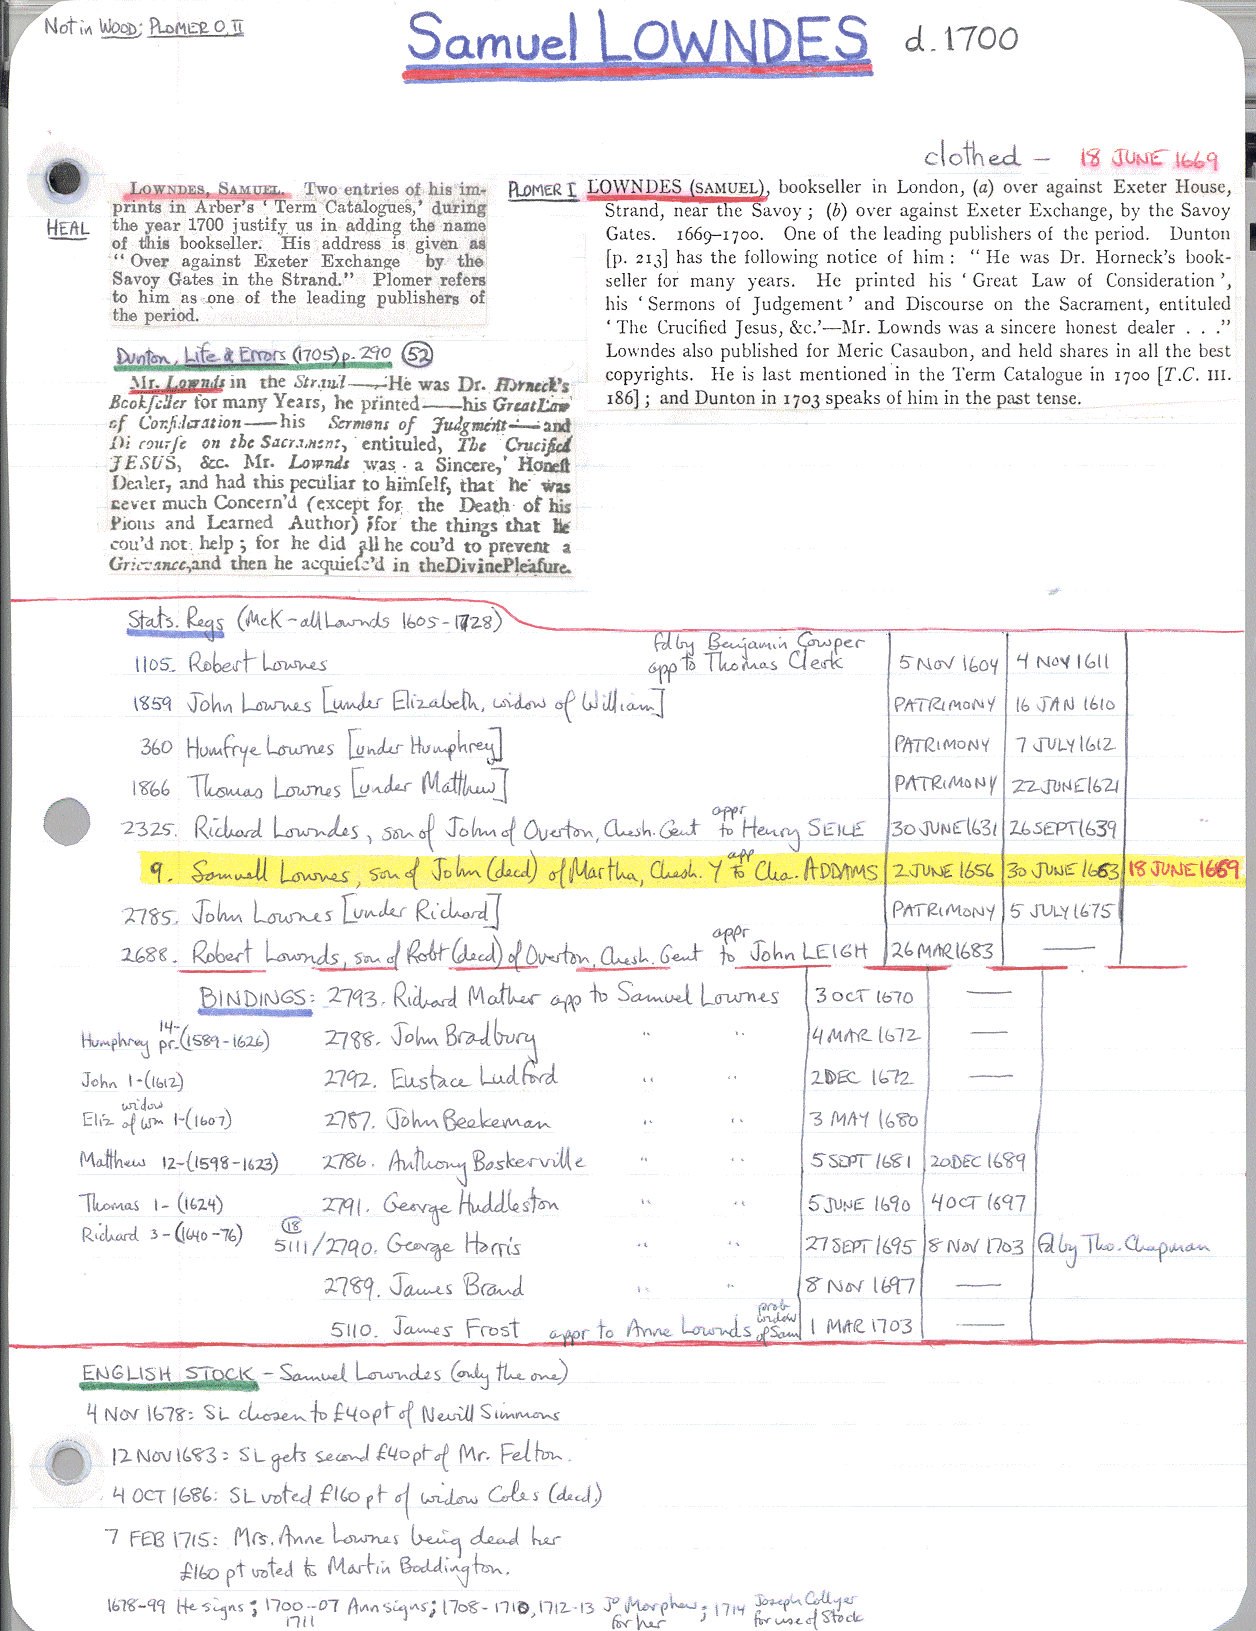 Not in WOOD; PLOMER O, II
Samuel LOWNDES d. 1700
clothed – 18 JUNE 1669
HEAL
LOWNDES, SAMUEL. Two entries of his im-
prints in Arber's ‘Term Catalogues,’ during
the year 1700 justify us in adding the name
of this bookseller. His address is given as
“Over against Exeter Exchange by the
Savoy Gates in the Strand.” Plomer refers
to him as one of the leading publishers of
the period.
PLOMER I LOWNDES (SAMUEL), bookseller in London, (a) over against Exeter House,
Strand, near the Savoy; (b) over against Exeter Exchange, by the Savoy
Gates. 1669–1700. One of the leading publishers of the period. Dunton
[p. 213] has the following notice of him: “He was Dr. Horneck's book-
seller for many years. He printed his ‘Great Law of Consideration’,
his ‘Sermons of Judgement’ and Discourse on the Sacrament, entituled
‘The Crucified Jesus, &c.’—Mr. Lownds was a sincere honest dealer . . .”
Lowndes also published for Meric Casaubon, and held shares in all the best
copyrights. He is last mentioned in the Term Catalogue in 1700 [T.C. III.
186]; and Dunton in 1703 speaks of him in the past tense.
Dunton, Life & Errors (1705) p. 290 (52)
Mr. Lownds in the Strand——He was Dr. Horneck's
Bookſeller for many Years, he printed——his Great Law
of Conſideration——his Sermons of Judgment——and
Diſcourſe on the Sacrament, entituled, The Crucified
JESUS, &c. Mr. Lownds was a Sincere, Honeſt
Dealer, and had this peculiar to himſelf, that he was
never much Concern'd (except for the Death of his
Pious and Learned Author) for the things that he
cou'd not help; for he did all he cou'd to prevent a
Grievance, and then he acquieſc'd in the Divine Pleaſure.
Stats. Regs (McK – all Lownds 1605-1728)
1105. Robert Lownes fd by Benjamin Cowper app to Thomas Clerk 5 NOV 1604 4 NOV 1611
1859 John Lownes [under Elizabeth, widow of William] PATRIMONY 16 JAN 1610
360 Humfrye Lownes [under Humphrey] PATRIMONY 7 JULY 1612
1866 Thomas Lownes [under Matthew] PATRIMONY 22 JUNE 1621
2325. Richard Lowndes, son of John of Overton, Chesh. Gent appr to Henry SEILE 30 JUNE 1631 26 SEPT 1639
9. Samuell Lownes, son of John (decd) of Martha, Chesh. Y app to Cha. ADDAMS 2 JUNE 1656 30 JUNE 1663 18 JUNE 1669
2785. John Lownes [under Richard] PATRIMONY 5 JULY 1675
2688. Robert Lownds, son of Robt (decd) of Overton, Chesh. Gent appr to John LEIGH 26 MAR 1683 —
BINDINGS: 2793. Richard Mather app to Samuel Lownes 3 OCT 1670 —
Humphrey 14- pr. (1589-1626) 2788. John Bradbury " " 4 MAR 1672 —
John 1-(1612) 2792. Eustace Ludford " " 2 DEC 1672 —
Eliz widow of Wm 1-(1607) 2787. John Beekeman " " 3 MAY 1680
Matthew 12-(1598-1623) 2786. Anthony Baskerville " " 5 SEPT 1681 20 DEC 1689
Thomas 1- (1624) 2791. George Huddleston " " 5 JUNE 1690 4 OCT 1697
Richard 3-(1640-76) (18) 5111/2790. George Harris " " 27 SEPT 1695 8 NOV 1703 fd by Tho. Chapman
2789. James Brand " " 8 NOV 1697 —
5110. James Frost appr to Anne Lownds prob widow of Sam 1 MAR 1703 —
ENGLISH STOCK – Samuel Lowndes (only the one)
4 NOV 1678: SL chosen to £40 pt of Nevill Simmons
12 NOV 1683: SL gets second £40 pt of Mr. Felton.
4 OCT 1686: SL voted £160 pt of widow Coles (decd.)
7 FEB 1715: Mrs. Anne Lownes being dead her
£160 pt voted to Martin Boddington.
1678-99 He signs; 1700-07 Ann signs; 1708-1710, 1712-13 Jo Morphew; 1714 Joseph Collyer
1711 for her for use of Stock